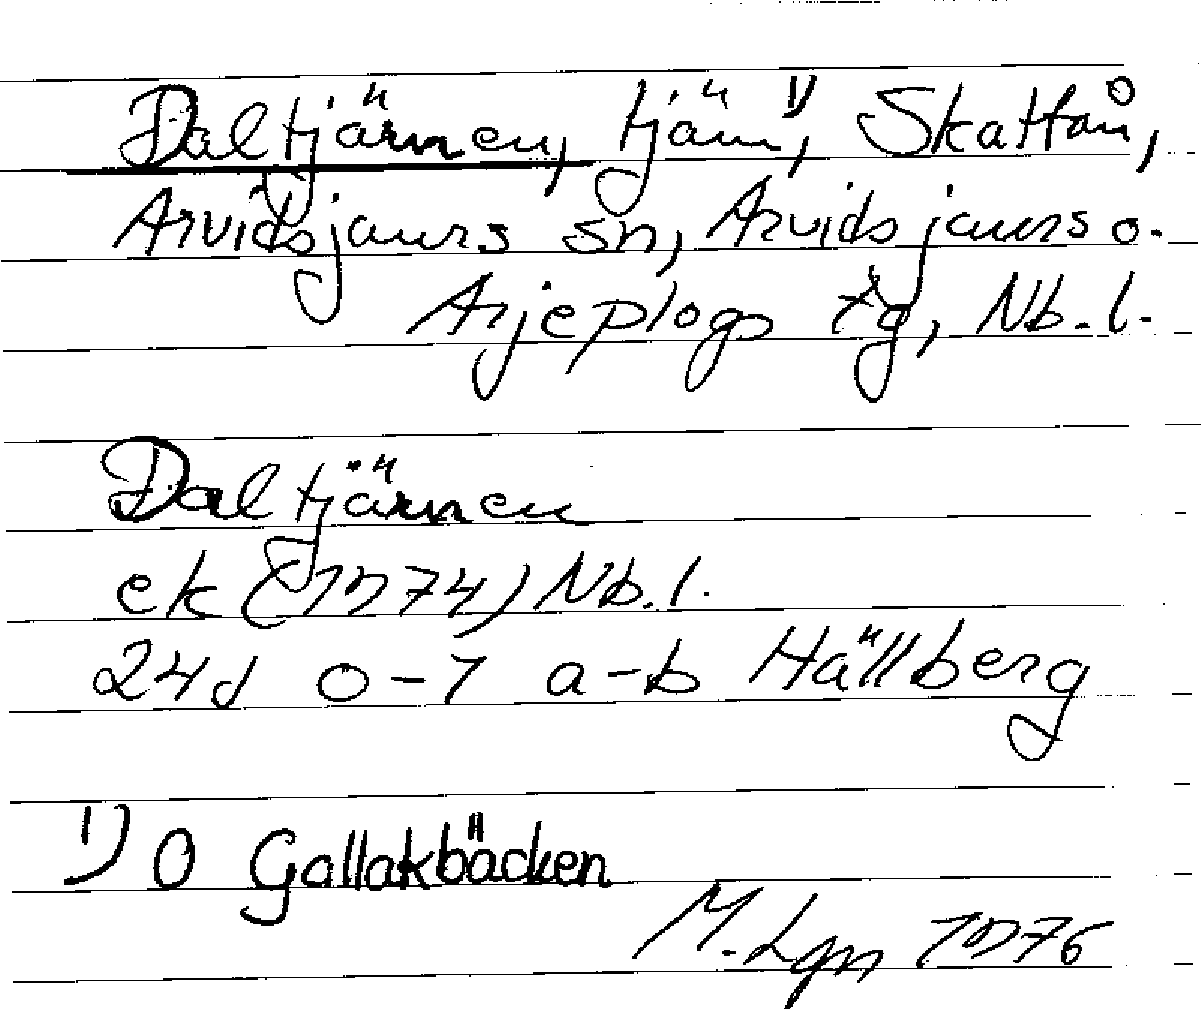 Daltjärnen, tjärn 1), Skattån,
Arvidsjaurs sn, Arvidsjaurs o.
Arjeplogs tg, Nb. l.
Daltjärnen
ek (1974) Nb. l.
24d 0-1 a-b Hällberg
1) O Gallakbäcken
M. Lgn 1976